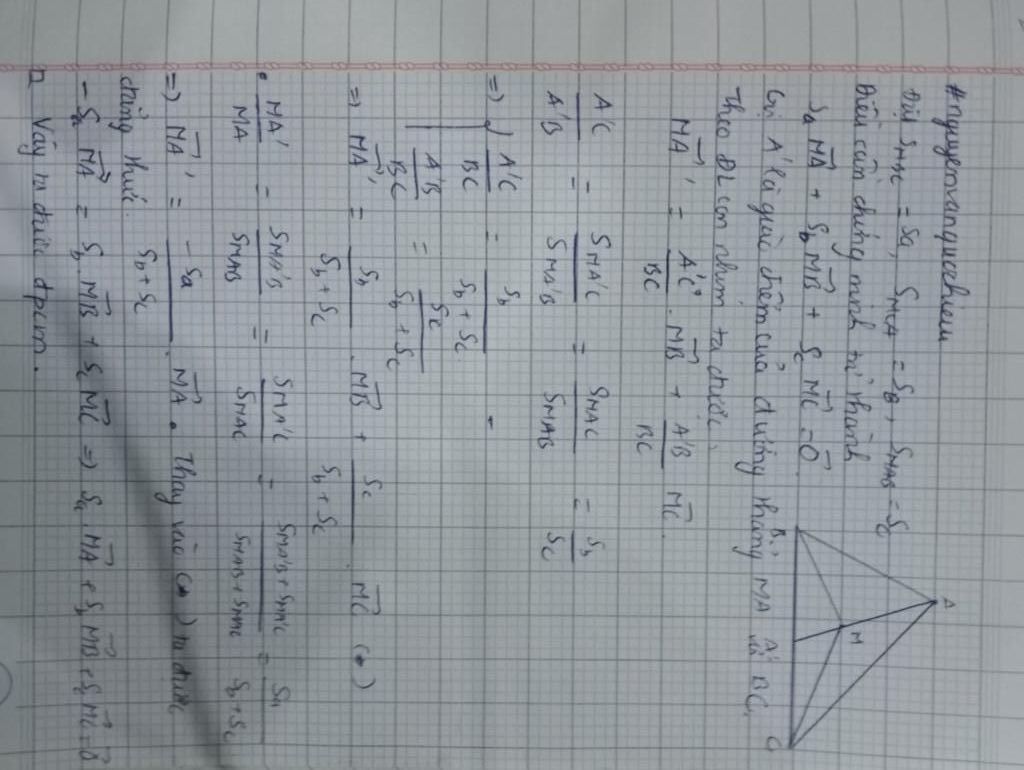 #nguyenvanquebiem
Đặt S_MBC = Sa, S_MCA = S_B, S_MAB = S_C
Điều cần chứng minh trở thành
Sa \vec{MA} + S_b \vec{MB} + S_c \vec{MC} = \vec{0}
Gọi A' là giao điểm của đường thẳng MA và BC,
Theo ĐL con nhím ta được:
\vec{MA'} = \frac{A'C}{BC} . \vec{MB} + \frac{A'B}{BC} \vec{MC} .
\frac{A'C}{A'B} = \frac{S_{MA'C}}{S_{MA'B}} = \frac{S_{MAC}}{S_{MAB}} = \frac{S_b}{S_c}
=> \frac{A'C}{BC} = \frac{S_b}{S_b + S_c}
\frac{A'B}{BC} = \frac{S_c}{S_b + S_c}
=> \vec{MA'} = \frac{S_b}{S_b + S_c} . \vec{MB} + \frac{S_c}{S_b + S_c} . \vec{MC} (*)
• \frac{MA'}{MA} = \frac{S_{MA'B}}{S_{MAB}} = \frac{S_{MA'C}}{S_{MAC}} = \frac{S_{MA'B} + S_{MA'C}}{S_{MAB} + S_{MAC}} = \frac{Sa}{S_b + S_c}
=> \vec{MA'} = \frac{-Sa}{S_b + S_c} . \vec{MA} . Thay vào (*) ta được
đẳng thức.
- Sa \vec{MA} = S_b . \vec{MB} + S_c \vec{MC} => Sa \vec{MA} + S_b \vec{MB} + S_c \vec{MC} = \vec{0}
Vậy ta được đpcm.
A
M
B
A'
C